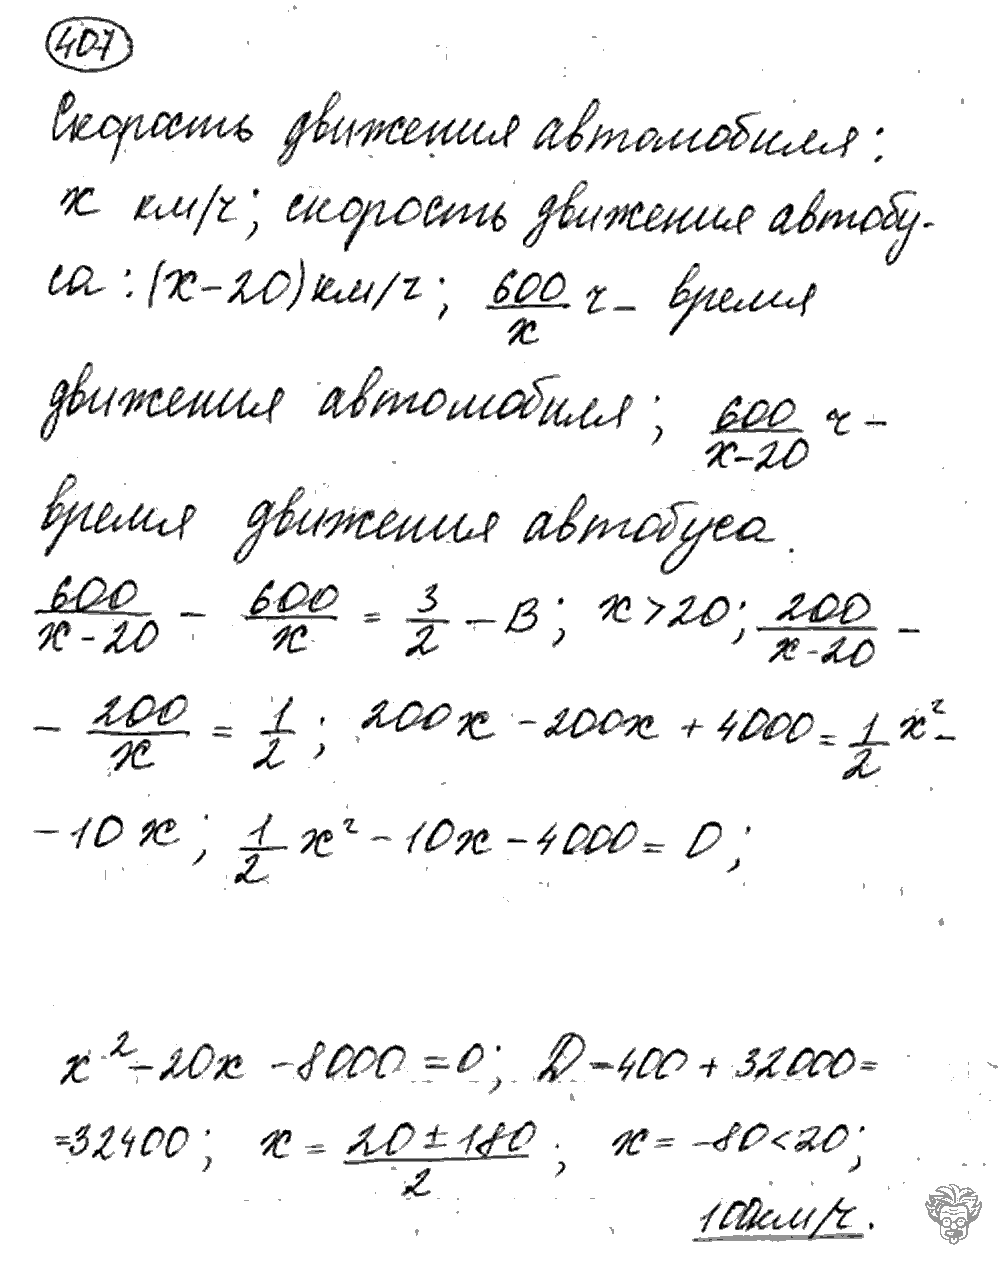 407
Скорость движения автомобиля:
x км/ч; скорость движения автобу-
са: (x-20) км/ч; 600/x ч - время
движения автомобиля; 600/(x-20) ч -
время движения автобуса.
600/(x-20) - 600/x = 3/2 - В; x>20; 200/(x-20) -
- 200/x = 1/2; 200x - 200x + 4000 = 1/2 x² -
- 10x; 1/2 x² - 10x - 4000 = 0;
x² - 20x - 8000 = 0; D = 400 + 32000 =
= 32400; x = (20 ± 180)/2; x = -80 < 20;
100км/ч.